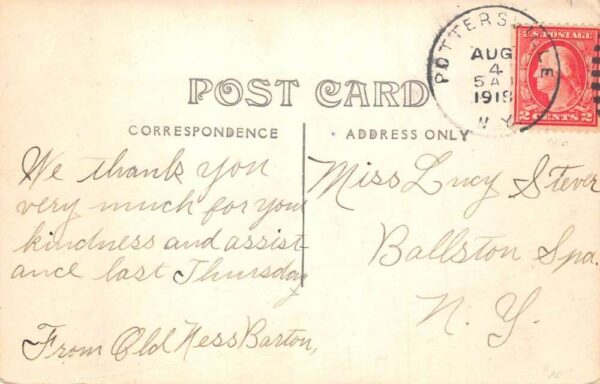 POTTERSVILLE
AUG
4
5 A
1918
N Y
U.S. POSTAGE
2 CENTS 2
POST CARD
CORRESPONDENCE
ADDRESS ONLY
We thank you
very much for your
kindness and assist
ance last Thursday
From Old Ness Barton,
Miss Lucy Stever
Ballston Spa.
N. Y.